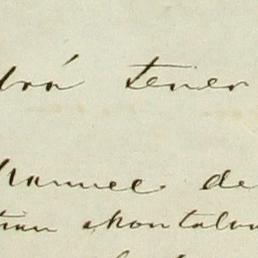 drá tener
Manuel de
tian Montalvo